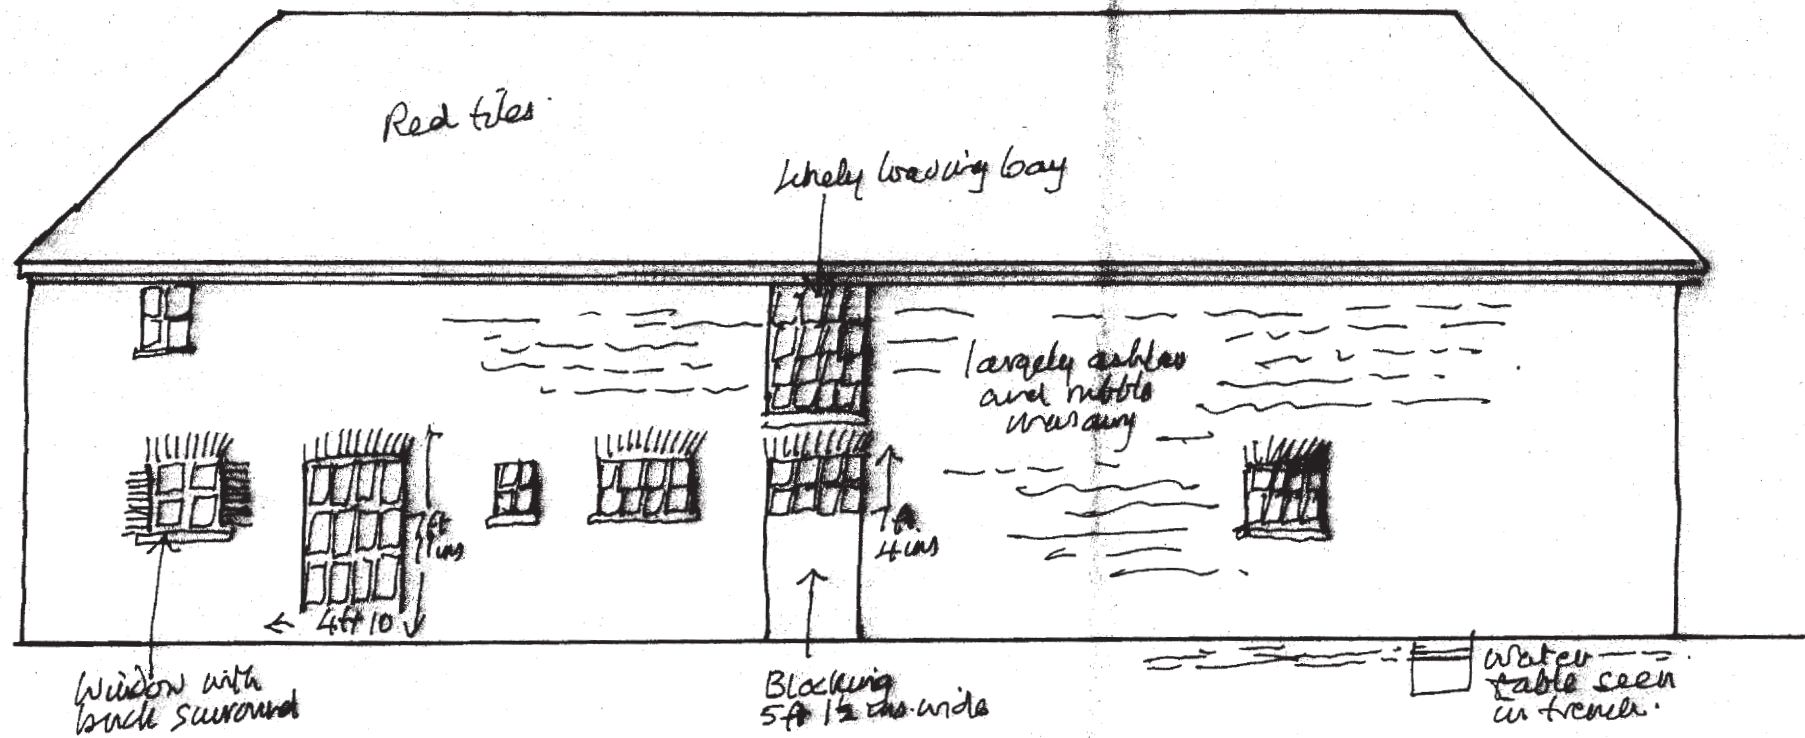 Red tiles
Likely loading bay
largely ashlar
and rubble
masonry
ft
ins
1 ft.
4 ins
← 4ft 10
Window with
brick surround
Blocking
5ft 1½ ins. wide
water
table seen
in trench.